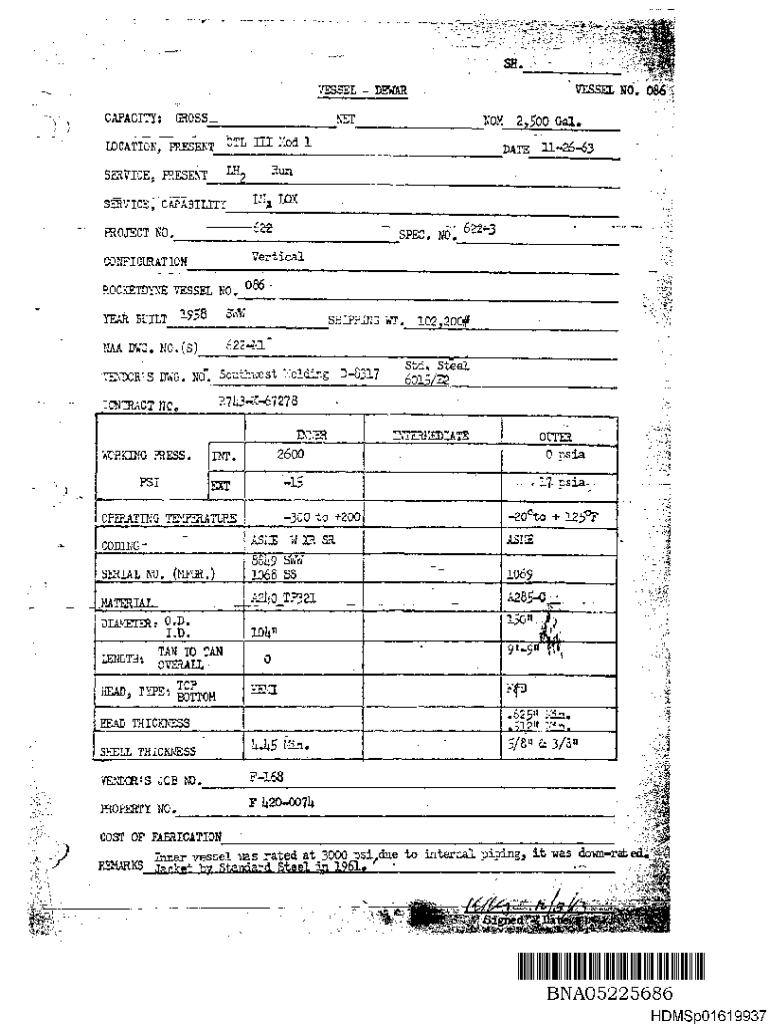 SH.
VESSEL - DEWAR VESSEL NO. 086
CAPACITY: GROSS NET NOM 2,500 Gal.
LOCATION, PRESENT CTL III Mod 1 DATE 11-26-63
SERVICE, PRESENT LH2 Run
SERVICE, CAPABILITY LOX
PROJECT NO. 622 SPEC. NO. 622-3
CONFIGURATION Vertical
ROCKETDYNE VESSEL NO. 086
YEAR BUILT 1958 SWW SHIPPING WT. 102,200#
NAA DWG. NO.(S)
VENDOR'S DWG. NO. Southwest Welding D-8317 Std. Steel
6015/E2
CONTRACT NO.
INNER INTERMEDIATE OUTER
WORKING PRESS. INT. 2600 0 psia
PSI EXT -15 17 psia
OPERATING TEMPERATURE -300 to +200 -20° to + 125°F
CODING ASME W XR SR ASME
8649 SWW
SERIAL NO. (MFGR.) 1068 SS 1069
MATERIAL A240 TP321 A285-C
DIAMETER: O.D. 130"
I.D. 104"
LENGTH: TAN TO TAN 0 9'-9"
OVERALL
HEAD, TYPE: TOP HEMI F&D
BOTTOM
HEAD THICKNESS .625" Min.
.512" Min.
SHELL THICKNESS 4.45 Min. 5/8" & 3/8"
VENDOR'S JOB NO. F-168
PROPERTY NO. F 420-0074
COST OF FABRICATION
REMARKS Inner vessel was rated at 3000 psi, due to internal piping, it was down-rated.
Jacket by Standard Steel in 1961.
Signed & Date
BNA05225686
HDMSp01619937